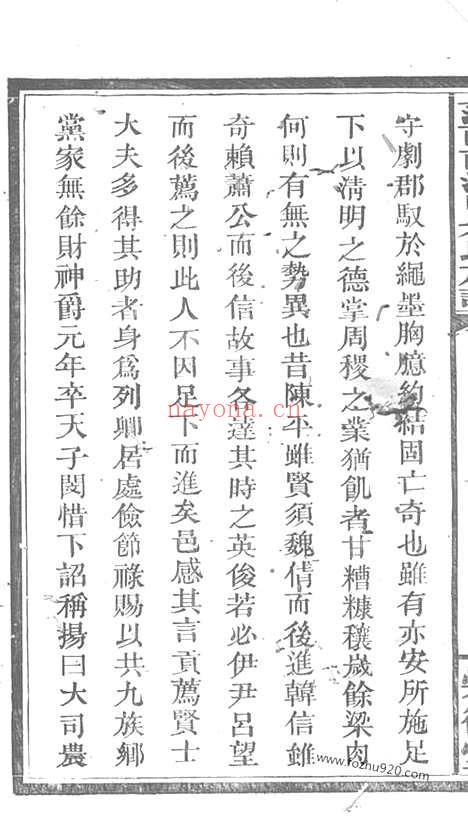 守劇郡馭於繩墨胸臆約結固亡奇也雖有亦安所施足
下以清明之德掌周稷之業猶飢者甘糟糠穰歲餘梁肉
何則有無之勢異也昔陳平雖賢須魏倩而後進韓信雖
奇賴蕭公而後信故事各達其時之英俊若必伊尹呂望
而後薦之則此人不因足下而進矣邑感其言貢薦賢士
大夫多得其助者身爲列卿居處儉節祿賜以共九族鄉
黨家無餘財神爵元年卒天子閔惜下詔稱揚曰大司農
nayona.cn
www.fozhu920.com